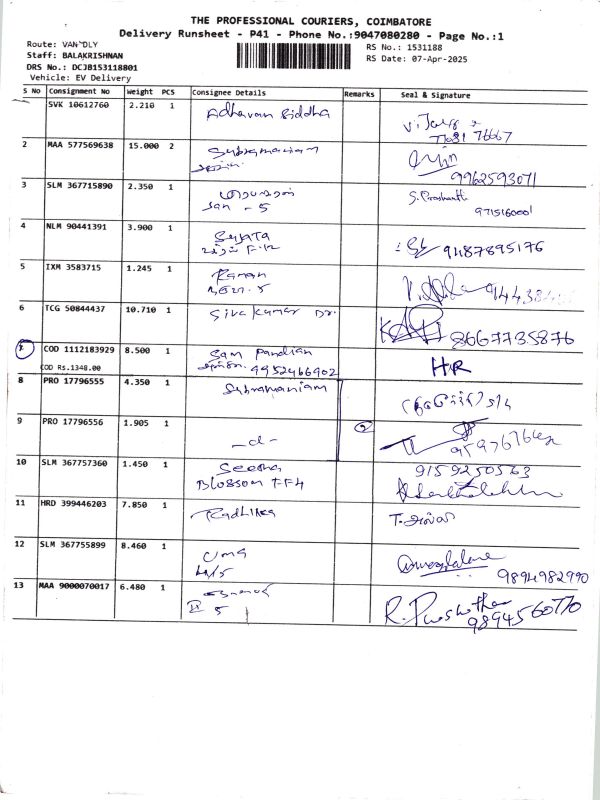 THE PROFESSIONAL COURIERS, COIMBATORE
Delivery Runsheet - P41 - Phone No.:9047080280 - Page No.:1
Route: VAN DLY
RS No.: 1531188
Staff: BALAKRISHNAN
RS Date: 07-Apr-2025
DRS No.: DCJB153118801
Vehicle: EV Delivery
S No Consignment No Weight PCS Consignee Details Remarks Seal & Signature
SVK 10612760 2.210 1 Adhavan Siddha
76667
2 MAA 577569638 15.000 2 Subramaniam
9962593071
3 SLM 367715890 2.350 1 S. Prashanth
San - 5 9715160001
4 NLM 90441391 3.900 1 Sujata
F-12 9487895176
5 IXM 3583715 1.245 1 Raman
6 TCG 50844437 10.710 1 Siva kumar Dr.
8667735876
7 COD 1112183929 8.500 1 Sam Pandian
COD Rs.1348.00 9952466902 HR
8 PRO 17796555 4.350 1 Subramaniam
9 PRO 17796556 1.905 1 -d- 2
10 SLM 367757360 1.450 1 Seetha 9159250563
Blossom FF4
11 HRD 399446203 7.850 1 Radhika
12 SLM 367755899 8.460 1 Uma
9894982990
13 MAA 9000070017 6.480 1
II 5 9894560770